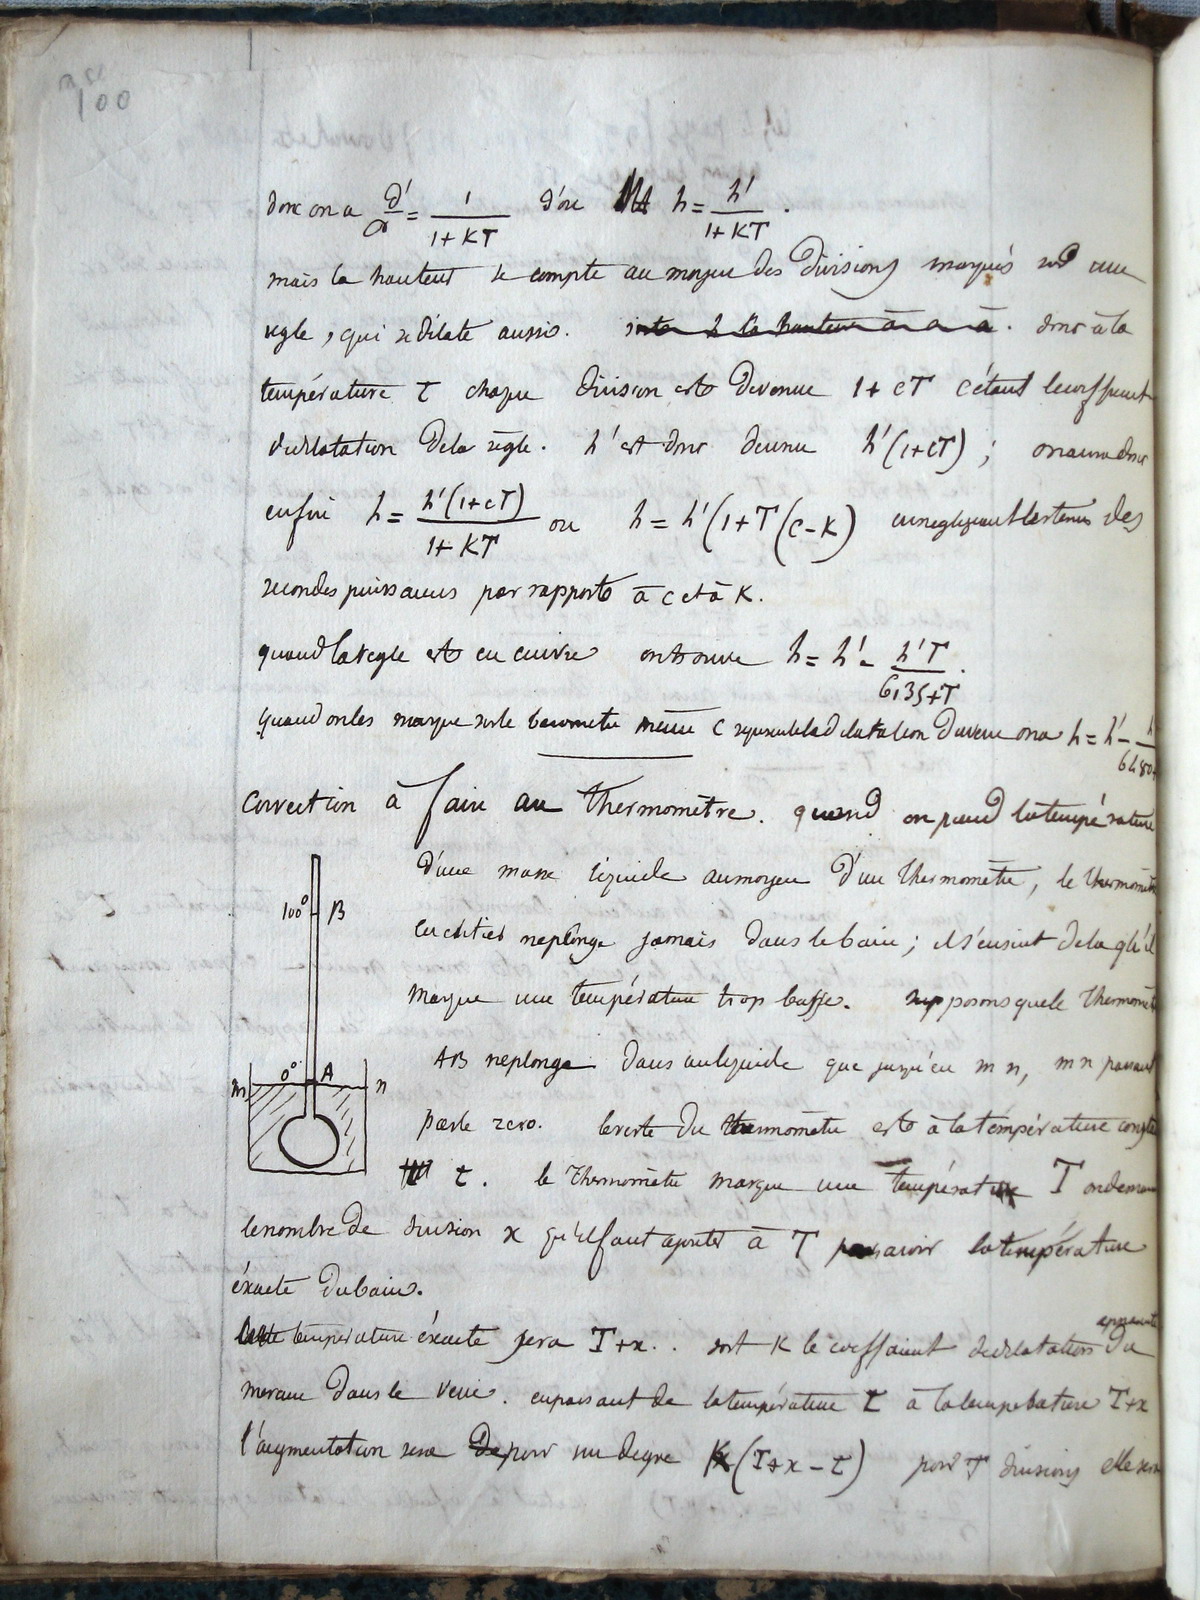 100
donc on a d'/d = 1/(1+KT) d'où h = h'/(1+KT).
mais la hauteur se compte au moyen des divisions marqués sur une
règle, qui se dilate aussi. donc à la
température t chaque division est devenue 1+cT c étant le coefficient
de dilatation de la règle. h' est donc devenu h'(1+cT) ; on aura donc
enfin h = h'(1+cT)/(1+KT) ou h = h'(1+T(c-K) en negligeant les termes des
secondes puissances par rapport à c et à K.
quand la règle est en cuivre on trouve h = h' - h'T/(6135+T).
quand on les marque sur le barometre même c représente la dilatation du verre on a h = h' -
correction à faire au thermomètre. quand on prend la température
d'une masse liquide au moyen d'un thermomètre, le thermomètre
en entier ne plonge jamais dans le bain ; il s'ensuit de là qu'il
marque une température trop basse. supposons que le thermomètre
AB ne plonge dans un liquide que jusqu'en m n, m n passant
par le zero. le reste du thermomètre est à la température
t. le thermomètre marque une température T on demande
le nombre de division x qu'il faut ajouter à T pour avoir la température
éxacte du bain.
100° B
m 0° A n
température éxacte sera T+x. soit K le coefficient de dilatation apparente du
mercure dans le verre. en passant de la température t à la température T+x
l'augmentation sera pour un degre K(T+x-t) pour T divisions elle sera